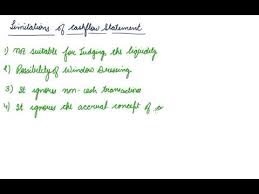 Limitations of Cashflow Statement
1) Not suitable for Judging the liquidity
2) Possibility of Window Dressing
3) It ignores non-cash transactions
4) It ignores the accrual concept of